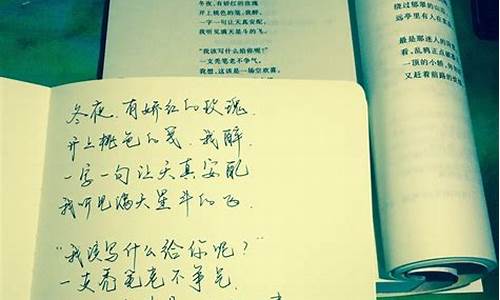 冬夜，有娇红的玫瑰
开上桃色的笺，我醉，
一字一句让天真安配，
我听见满天星斗的飞。
“我该写什么给你呢？”
一支秃笔老不争气，
我想，这该是一场空欢喜。
绕过郁翠的山
远亭里有人在
最是那迷人的
看，乱鸦正点
一顶的小轿，
又赶着前路的
冬夜，有娇红的玫瑰，
开上桃色的笺，我醉，
一字一句让天真安配
我听见满天星斗的飞。
“我该写什么给你呢？”
一支秃笔老不争气，